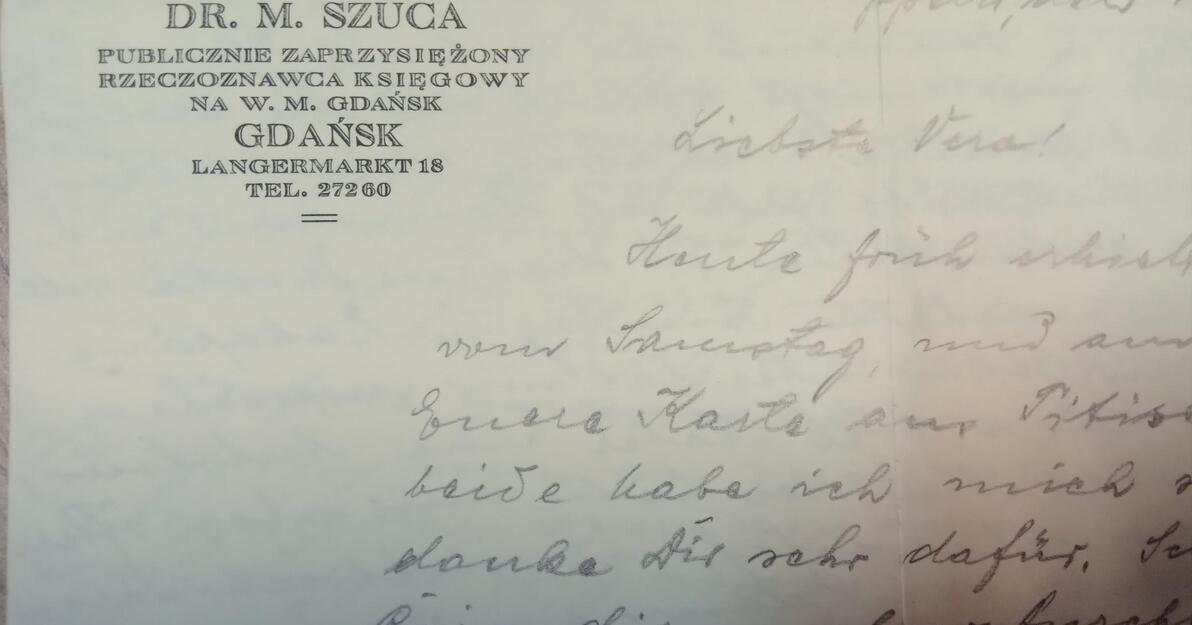 DR. M. SZUCA
PUBLICZNIE ZAPRZYSIĘŻONY
RZECZOZNAWCA KSIĘGOWY
NA W. M. GDAŃSK
GDAŃSK
LANGERMARKT 18
TEL. 27260
Liebste Vera!
Heute früh erhielt
vom Samstag, und am
Euere Karte aus Titise
beide habe ich mich s
danke Dir sehr dafür. Sc